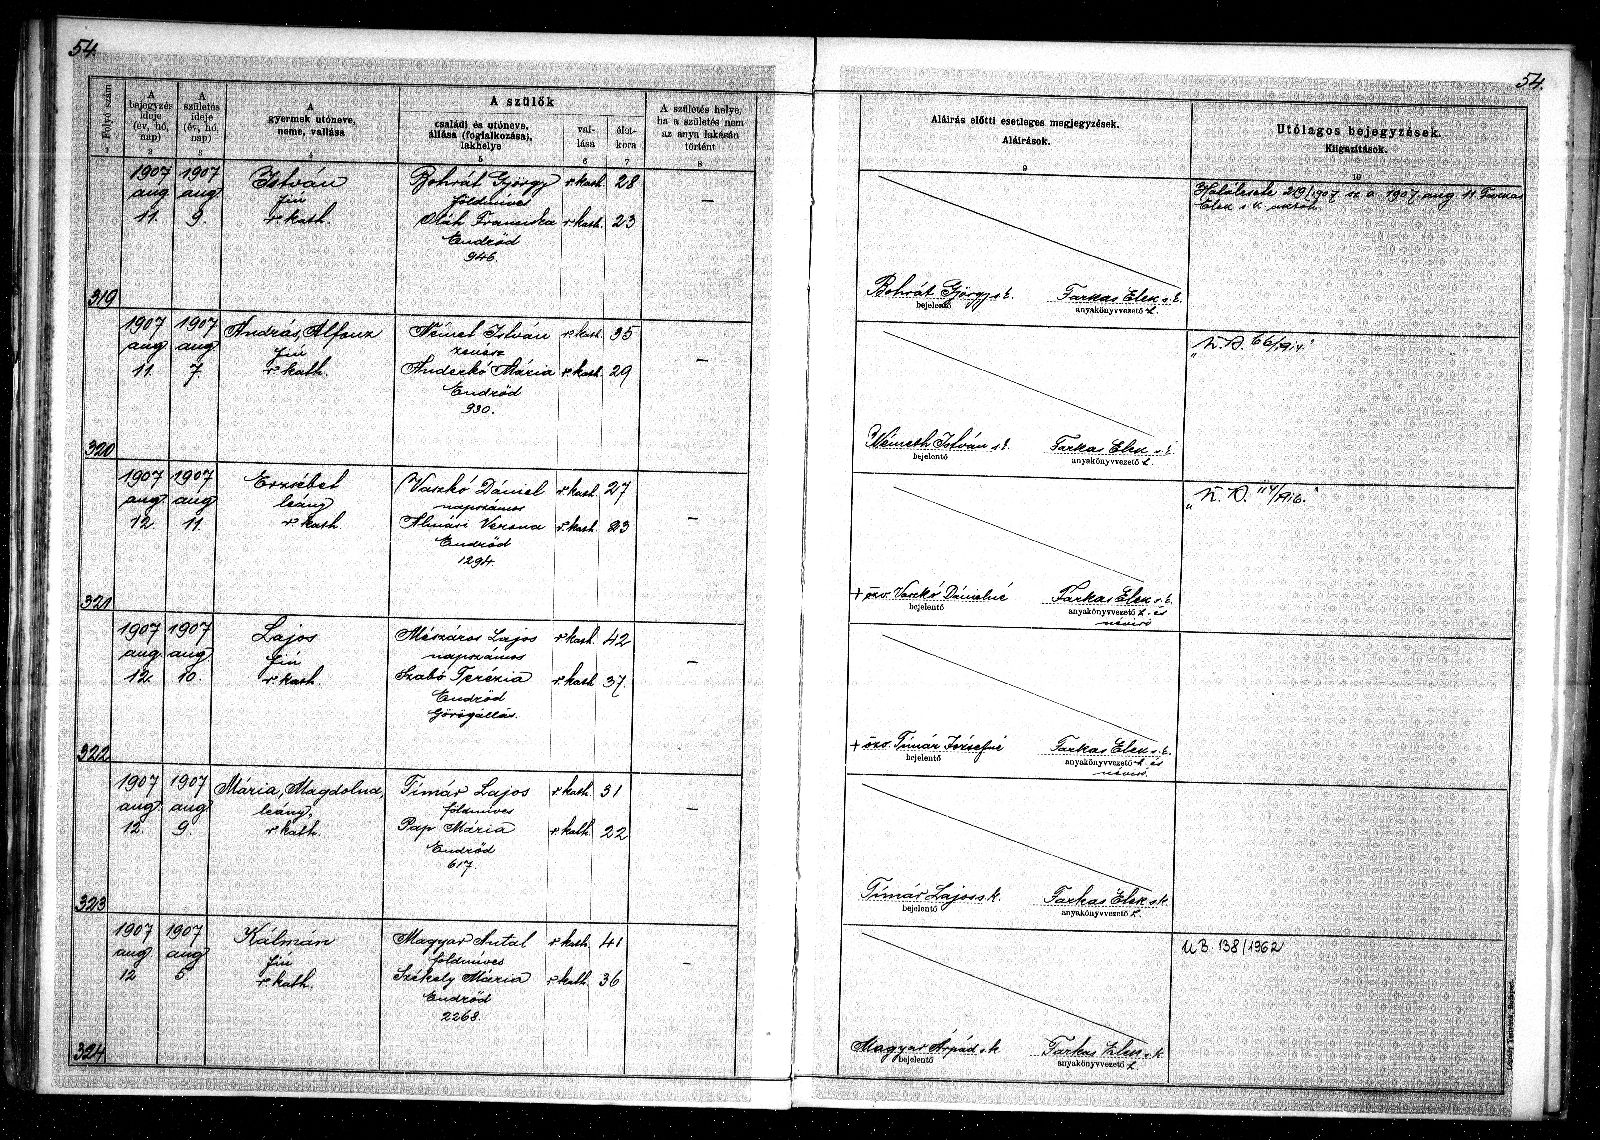 54.
54.
Folyó szám
A bejegyzés ideje (év, hó, nap)
A születés ideje (év, hó, nap)
A gyermek utóneve, neme, vallása
A szülők
családi és utóneve, állása (foglalkozása), lakhelye
vallása
életkora
A születés helye, ha a születés nem az anya lakásán történt
Aláírás előtti esetleges megjegyzések.
Aláírások.
Utólagos bejegyzések.
Kiigazítások.
1 2 3 4 5 6 7 8 9 10
319
1907 aug 11.
1907 aug 9.
István
fiú
r. kath.
Bohrát György r. kath. 28
földmives
Oláh Franciska r. kath. 23
Endrőd
946.
—
Bohrát György s. k.
bejelentő
Farkas Elek s. k.
anyakönyvvezető h.
Halálesete 219/1907 sz. a. 1907. aug 11. Farkas
Elek s. k. aktob.
320
1907 aug 11.
1907 aug 7.
András, Alfonz
fiú
r. kath.
Német István r. kath. 35
zenész
Anderkó Mária r. kath. 29
Endrőd
930.
—
Németh István s. k.
bejelentő
Farkas Elek s. k.
anyakönyvvezető h.
„N. B. 66/1914.“
321
1907 aug 12.
1907 aug 11.
Erzsébet
leány
r. kath.
Vaszkó Dániel r. kath. 27
napszámos
Almási Verona r. kath. 23
Endrőd
1294.
—
+ özv. Vaszkó Dánielné
bejelentő
Farkas Elek s. k.
anyakönyvvezető h. és
névíró
322
1907 aug 12.
1907 aug 10.
Lajos
fiú
r. kath.
Mészáros Lajos r. kath. 42
napszámos
Szabó Terézia r. kath. 37.
Endrőd
Görögállás.
—
+ özv. Tímár Józsefné
bejelentő
Farkas Elek s. k.
anyakönyvvezető h. és
névíró.
323
1907 aug 12.
1907 aug 9.
Mária, Magdolna,
leány,
r. kath.
Tímár Lajos r. kath. 31
földmives
Pap Mária r. kath. 22
Endrőd
617.
—
Tímár Lajos s. k.
bejelentő
Farkas Elek s. k.
anyakönyvvezető h.
324
1907 aug. 12
1907 aug 5
Kálmán
fiú
r. kath.
Magyar Antal r. kath. 41
földmives
Székely Mária r. kath. 36
Endrőd
2268.
—
Magyar Árpád s. k.
bejelentő
Farkas Elek s. k.
anyakönyvvezető h.
U B. 138/1962